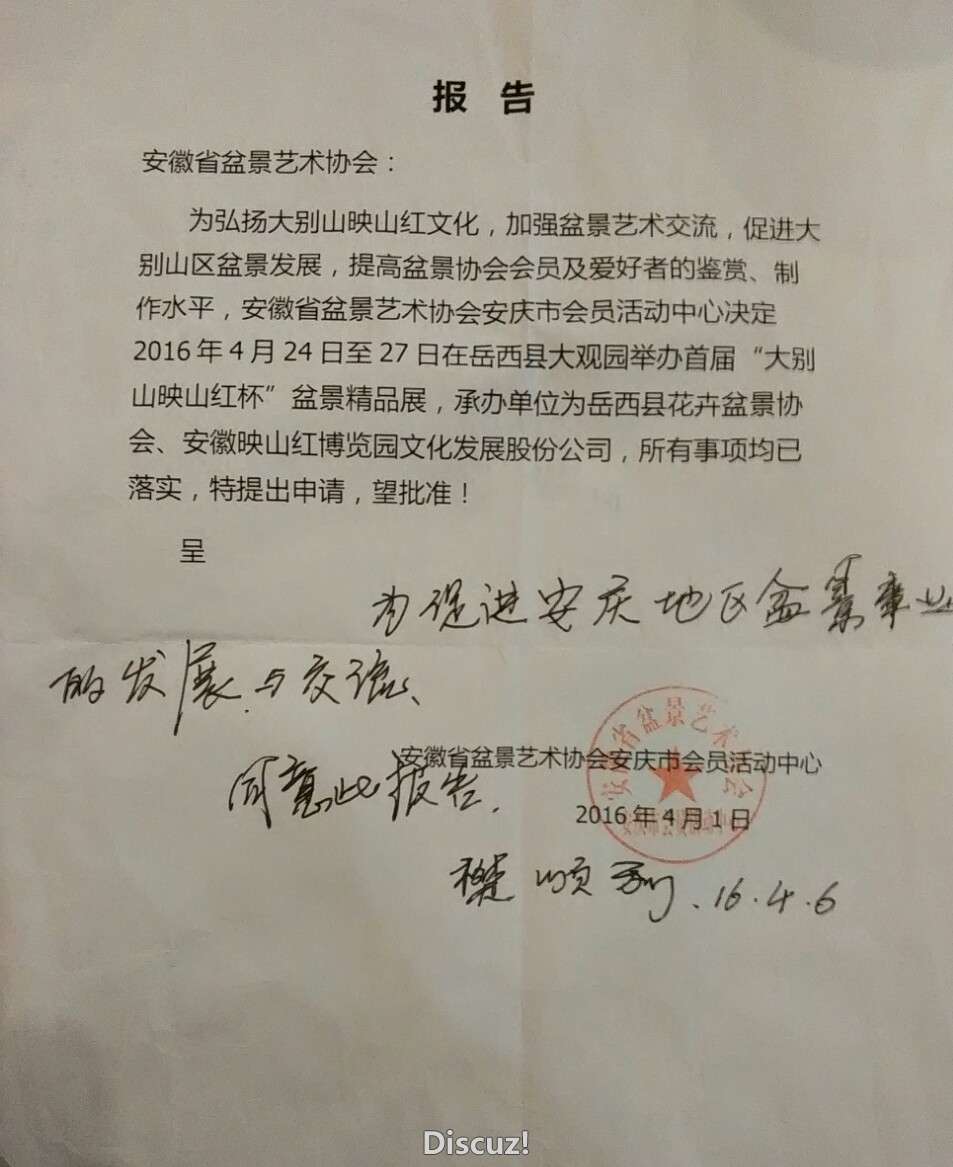 报 告
安徽省盆景艺术协会：
为弘扬大别山映山红文化，加强盆景艺术交流，促进大
别山区盆景发展，提高盆景协会会员及爱好者的鉴赏、制
作水平，安徽省盆景艺术协会安庆市会员活动中心决定
2016 年 4 月 24 日至 27 日在岳西县大观园举办首届“大别
山映山红杯”盆景精品展，承办单位为岳西县花卉盆景协
会、安徽映山红博览园文化发展股份公司，所有事项均已
落实，特提出申请，望批准！
呈
为促进安庆地区盆景事业
的发展与交流、
安徽省盆景艺术协会安庆市会员活动中心
同意此报告.
2016 年 4 月 1 日
安徽省盆景艺术协会
安庆市会员活动中心
樊顺利.16.4.6
Discuz!